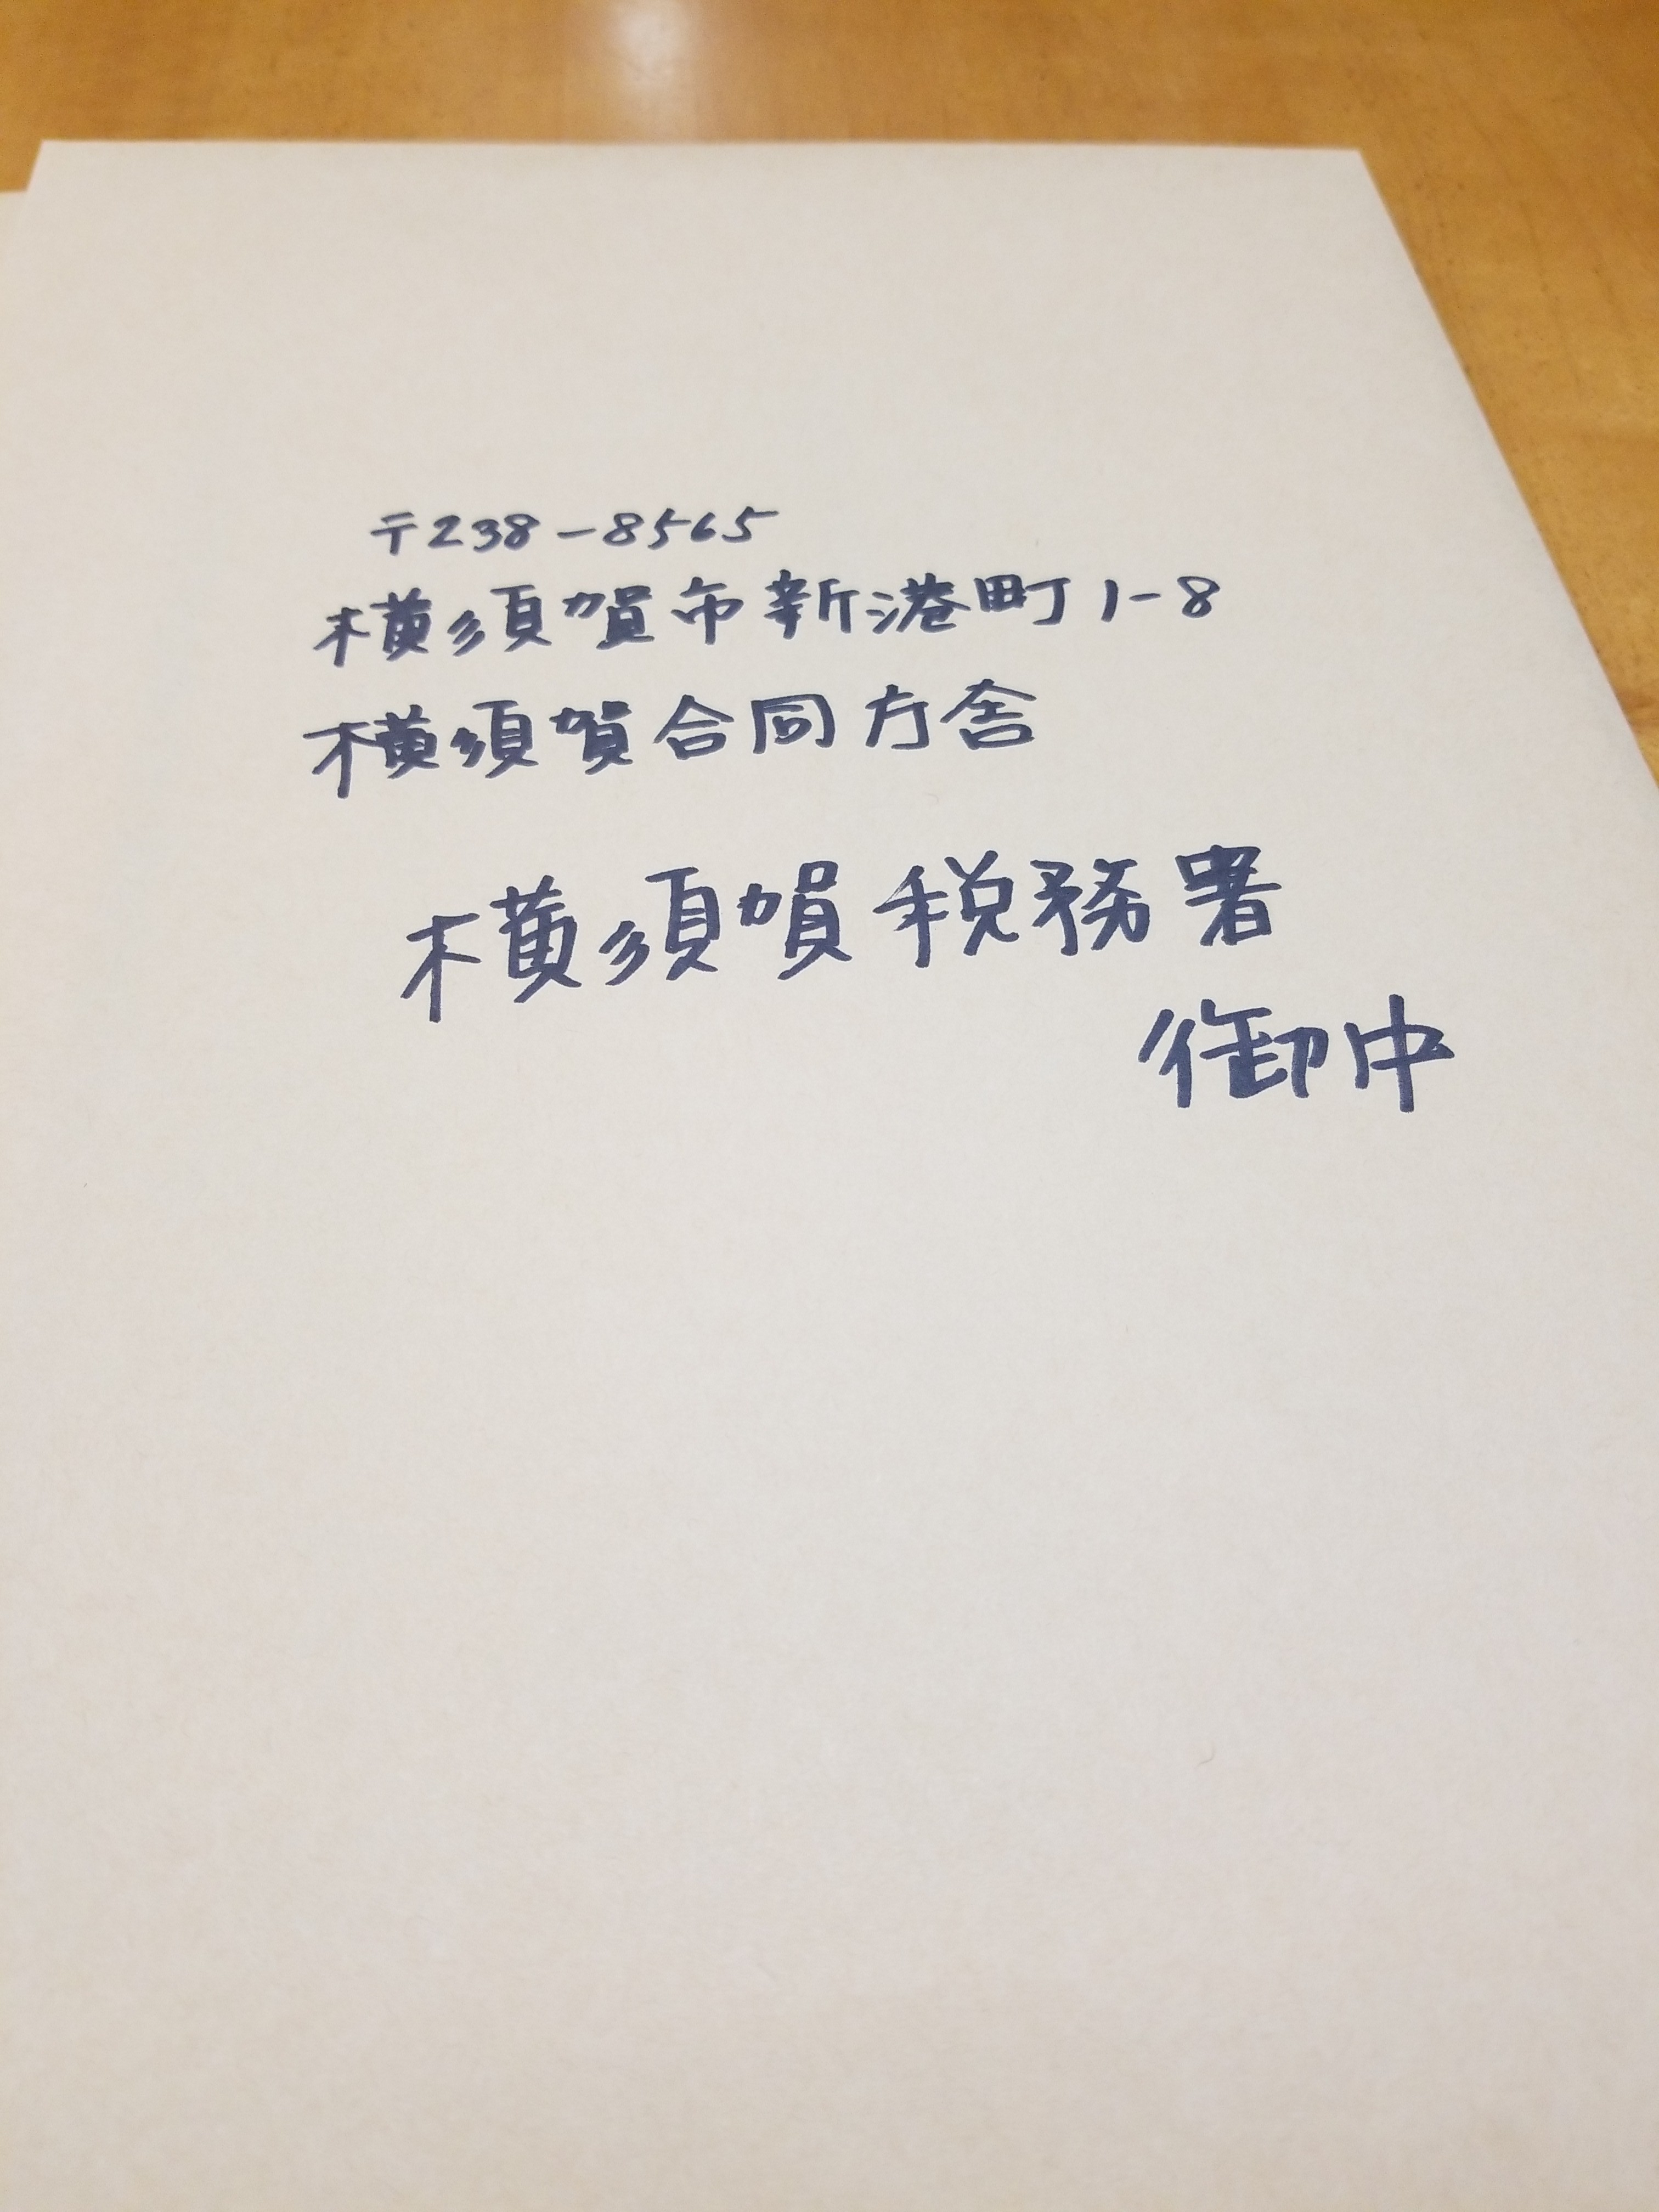 〒238-8565
横須賀市新港町1-8
横須賀合同庁舎
横須賀税務署
御中